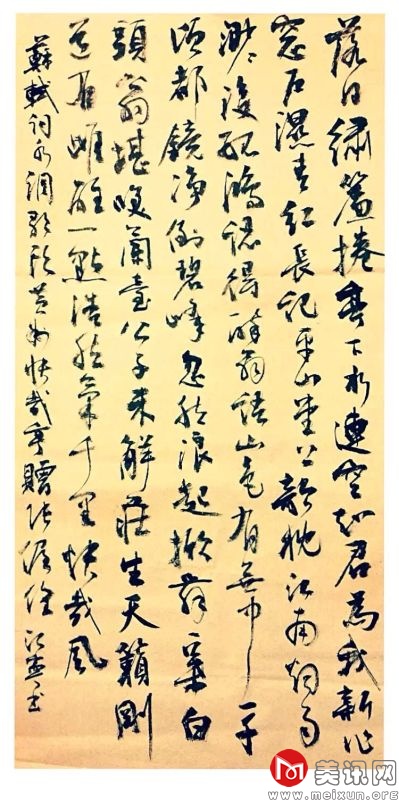 落日繡簾捲亭下水連空知君為我新作
窓户濕青紅長記平山堂上欹枕江南烟雨
渺渺沒孤鴻認得醉翁語山色有無中一千
頃都鏡淨倒碧峰忽然浪起掀舞一葉白
頭翁堪笑蘭臺公子未解莊生天籟剛
道有雌雄一點浩然氣千里快哉風
蘇軾詞水調歌頭黃州快哉亭贈張偓佺 江
美讯网
www.meixun.org